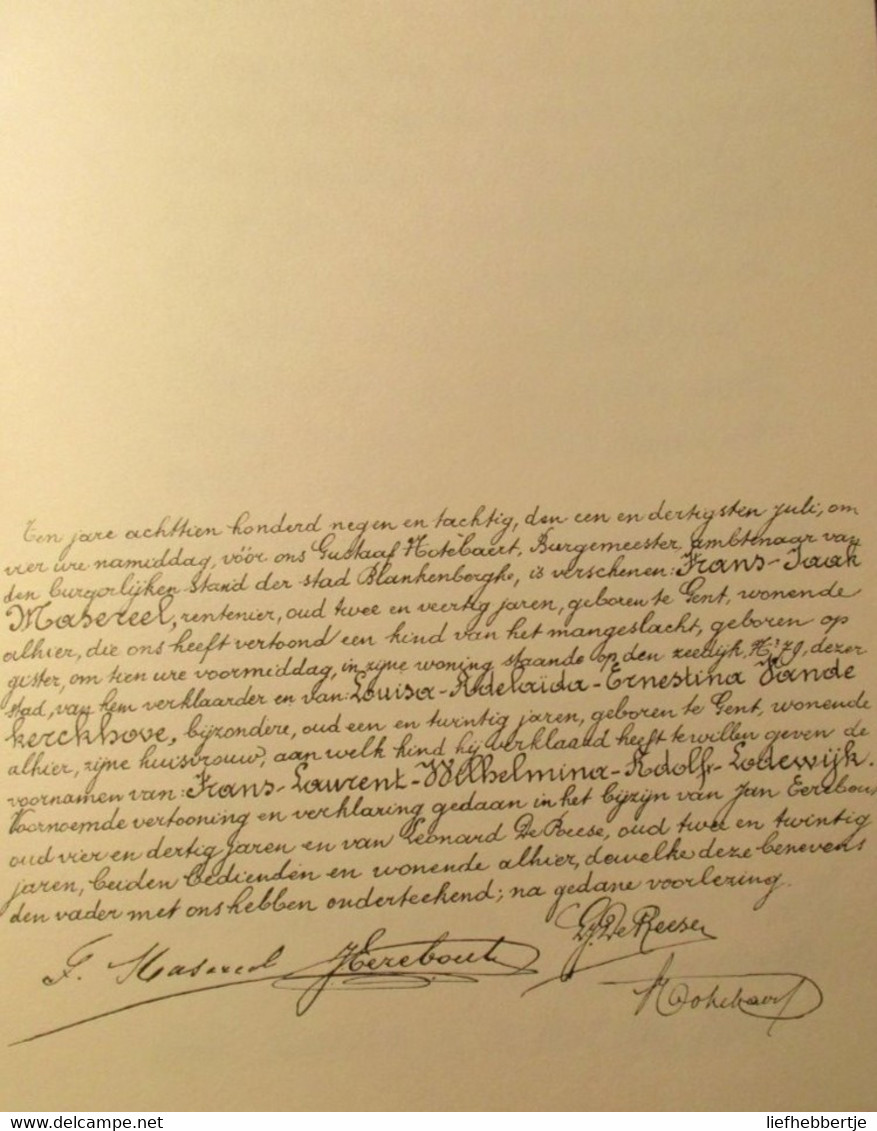 Ten jare achttien honderd negen en tachtig, den een en dertigsten juli, om
vier ure namiddag, vóór ons Gustaaf Hotebaert, Burgemeester, ambtenaar van
den burgerlijken stand der stad Blankenberghe, is verschenen: Frans-Jaak
Masereel, rentenier, oud twee en veertig jaren, geboren te Gent, wonende
alhier, die ons heeft vertoond een kind van het mangeslacht, geboren op
gister, om tien ure voormiddag, in zijne woning staande op den zeedijk, N° 79, dezer
stad, van hem verklaarder en van: Louisa-Adelaïda-Ernestina Vande
kerckhove, bijzondere, oud een en twintig jaren, geboren te Gent, wonende
alhier, zijne huisvrouw, aan welk kind hij verklaard heeft te willen geven de
voornamen van: Frans-Laurent-Wilhelmina-Adolf-Lodewijk.
Voornoemde vertooning en verklaring gedaan in het bijzijn van Jan Eerebout
oud vier en dertig jaren en van Leonard De Reese, oud twee en twintig
jaren, beiden bedienden en wonende alhier, dewelke deze benevens
den vader met ons hebben onderteekend; na gedane voorlezing.
F. Masereel J Eerebout De Reese
delcampe.net
liefhebbertje